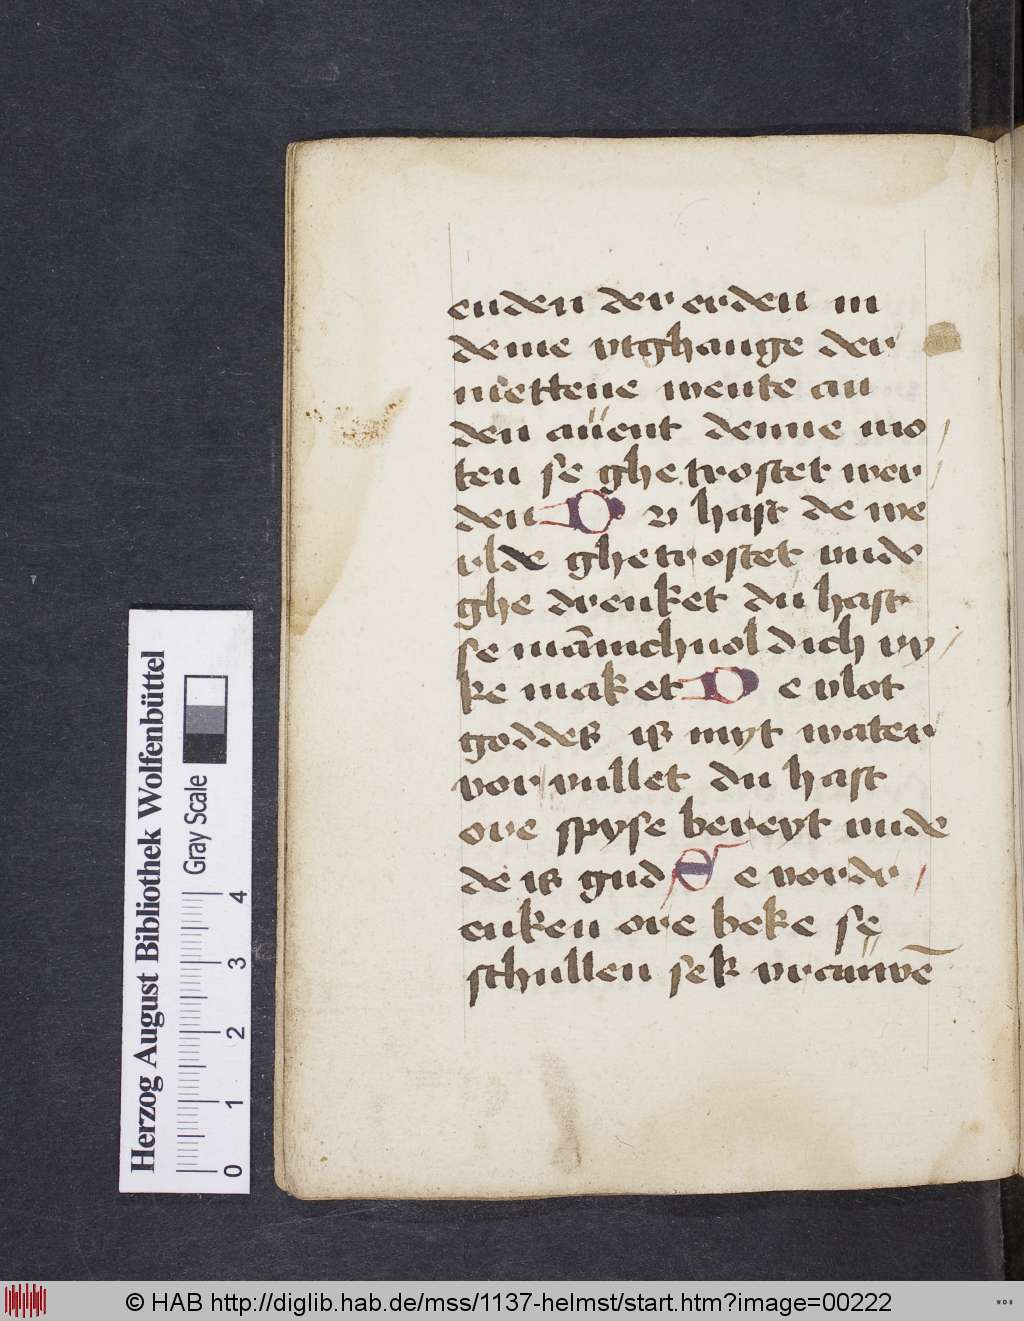 enden der erden in
deme vtghange der
mettene wente an
den auent denne mo
ten se ghe trostet wer
den D v hast de we
rlde ghe trostet vnde
ghe drenket du hast
se mānichuol dich ry
ke mak et D e vlot
goddes is myt water
vor vullet du hast
ore spyse bereyt vnde
de is gud S e vordr
enken ore beke se
schullen sek vrauwē
Herzog August Bibliothek Wolfenbüttel
Gray Scale
0 1 2 3 4
© HAB http://diglib.hab.de/mss/1137-helmst/start.htm?image=00222